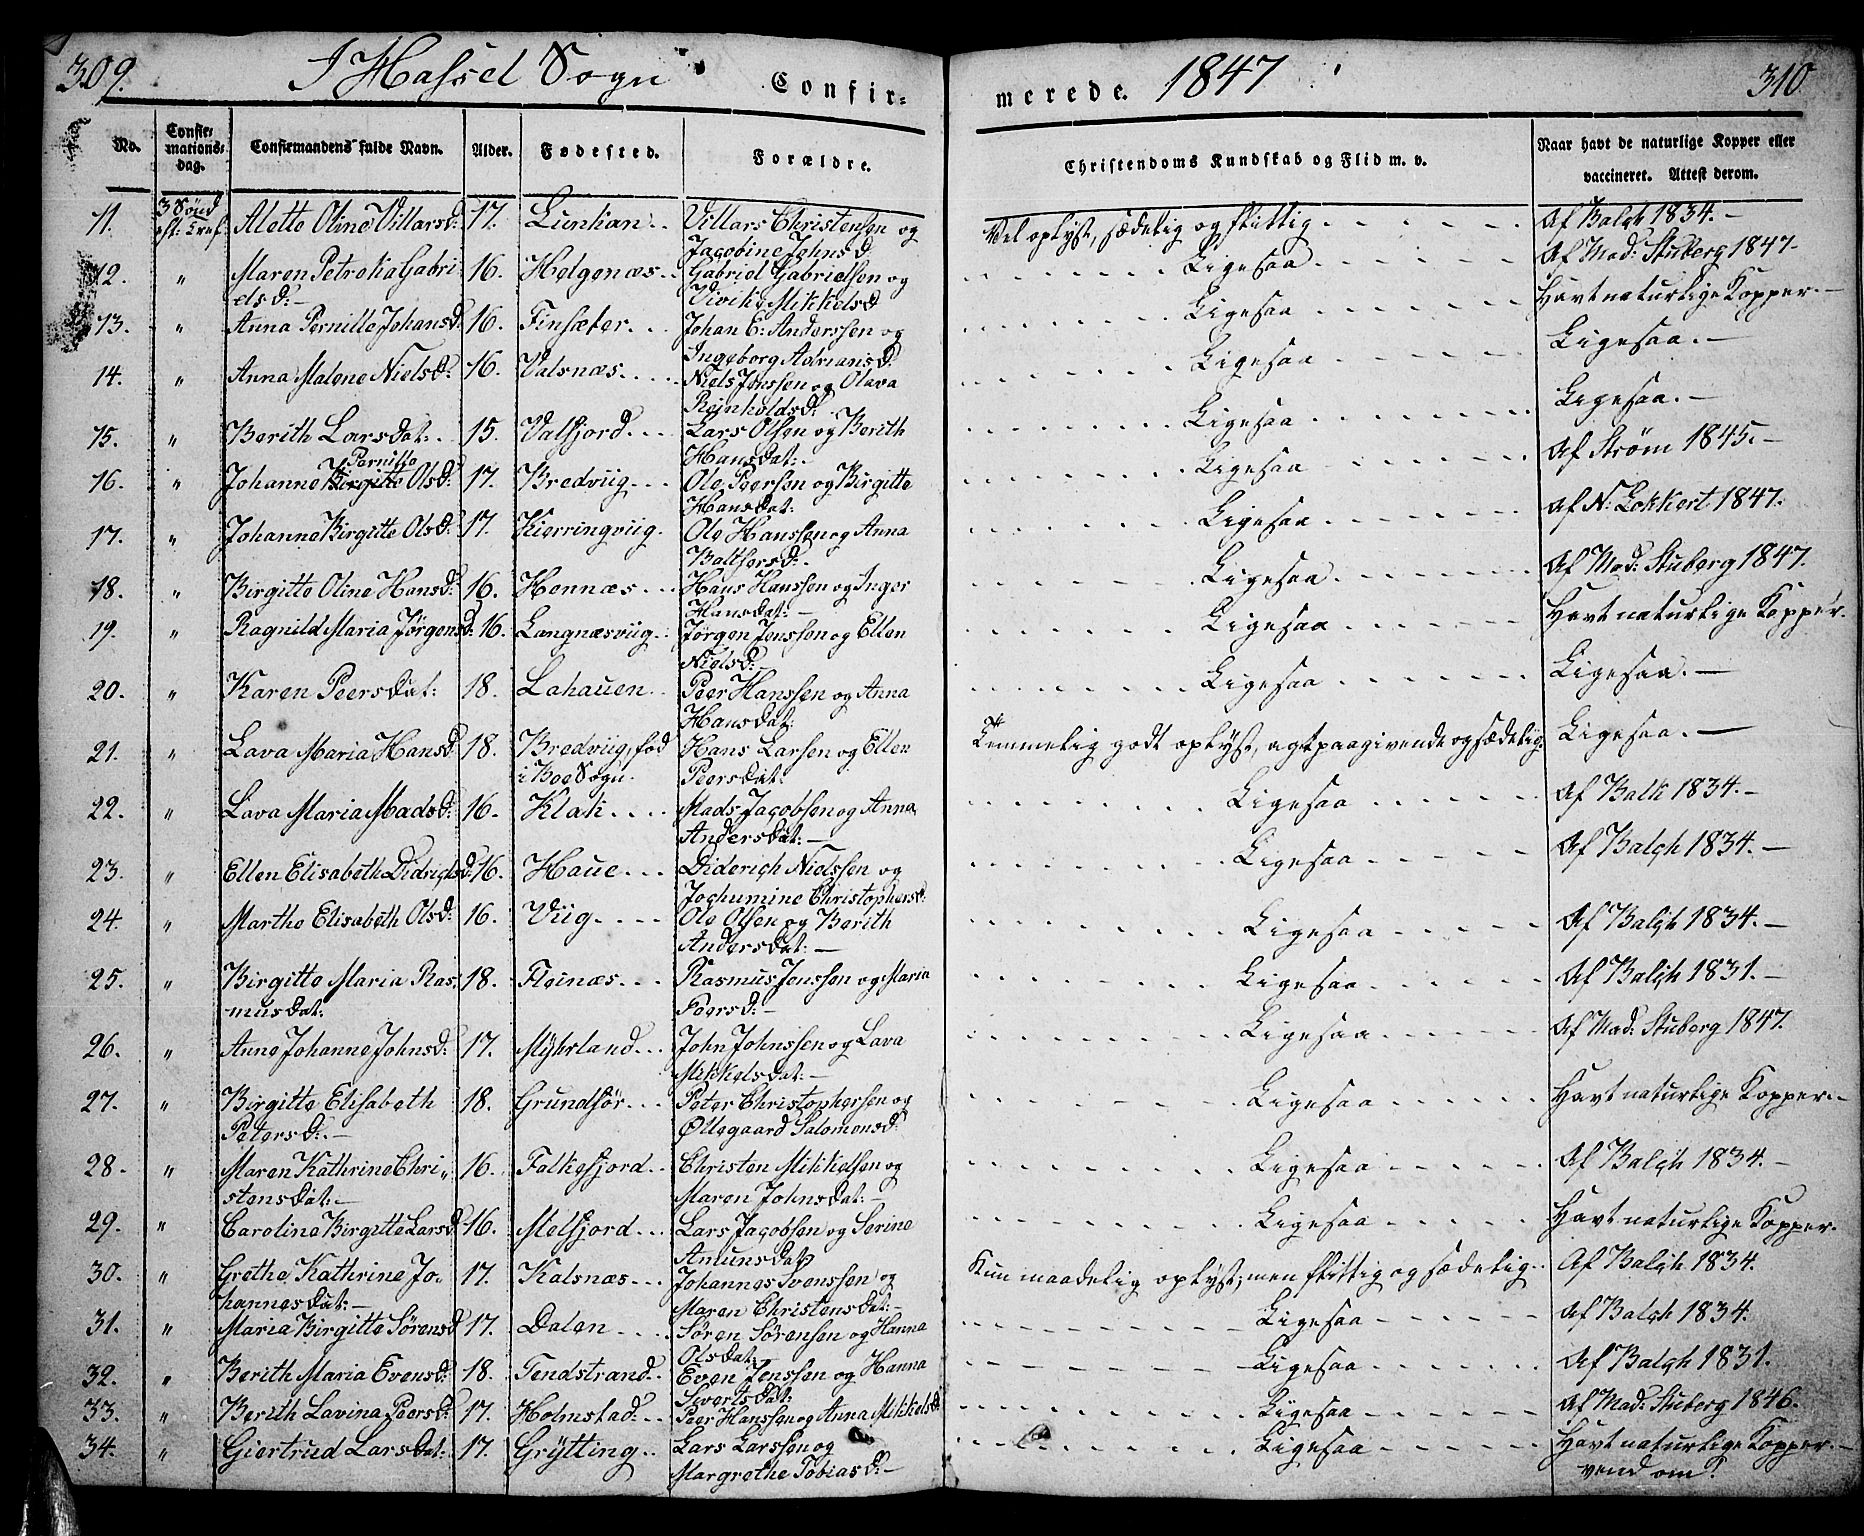 309. I Hassel Sogn Confir= merede. 1847 310
No. Confir=mations=dag. Confirmandens fulde Navn. Alder. Fødested. Forældre. Christendoms Kundskab og Flid m. v. Naar havt de naturlige Kopper eller vaccineret. Attest derom.
11. 3 Sønd Alette Oline Villarsd: 17. Villars Christensen og Vel oplyst, sædelig og flittig Af Balch 1834.-
Jacobine Johnsd:
12. " Maren Petrika Gabri 16. Helgenæs Gabriel Gabrielsen og Ligesaa Af Mad: Stuberg 1847-
elsd:- Mikkelsd
13. " Anna Pernille Johansd: 16. Finsæter Johan E: Anderssen og Ligesaa Havt naturlige Kopper.-
Ingeborg Adriansd:
14. " Anna Malene Nielsd: 16. Valsnæs Niels Jenssen og Olava Ligesaa Ligesaa.-
Reinholdsd:
15. " Berith Larsdat: 15. Valfjord Lars Olsen og Berith Ligesaa Ligesaa.-
Hansdat:
Pernille
16. " Johanne Birgitte Olsd: 17. Bredviig Ole Peersen og Birgitte Ligesaa Af Strøm 1845.-
Hansdat:
17. " Johanne Birgitte Olsd: 17. Kierringviig Ole Hanssen og Anna Ligesaa Af N: Lokkert 1847.
Baltsersd:
18. " Birgitte Oline Hansd: 16. Hennæs Hans Hanssen og Inger Ligesaa Af Mad: Stuberg 1847.
Hansdat:-
19. " Ragnild Maria Jørgensd: 16. Langnæsviig Jørgen Jenssen og Ellen Ligesaa Havt naturlige Kopper.
Nielsd:-
20. " Karen Peersdat: 18. Lahauen Peer Hanssen og Anna Ligesaa Ligesaa.-
Hansdat:
21. " Lava Maria Hansd: 18. Bredviig, fød Hans Larsen og Ellen Temmelig godt oplyst, agtpaagivende og sædelig. Ligesaa.-
i Boe Sogn. Peersdat:
22. " Lava Maria Madsd: 16. Klak Mads Jacobsen og Anna Ligesaa Af Balk 1834.-
Andersdat:-
23. " Ellen Elisabeth Didrichsd: 16. Haue Diderich Nielssen og Ligesaa Af Balch 1834.-
Jochumine Christophersd:
24. " Marthe Elisabeth Olsd: 16. Viig Ole Olsen og Berith Ligesaa Af Balch 1834.-
Andersdat:-
25. " Birgitte Maria Ras 18. Fleinæs Rasmus Jenssen og Maria Ligesaa Af Balch 1831.-
musdat:
26. " Anne Johanne Johnsd: 17. Myhrland John Johnssen og Lava Ligesaa Af Mad: Stuberg 1847.
Mikkelsdat:-
27. " Birgitte Elisabeth 18. Grundfør Peter Christophersen og Ligesaa Havt naturlige Kopper.-
Petersd:- Ollegaard Salomonsd:
28. " Maren Kathrine Chri= 16. Falkefjord Christen Mikkelsen og Ligesaa Af Balch 1834.-
stensdat:- Maren Johnsdat:-
29. " Caroline Birgitte Larsd: 16. Melfjord Lars Jacobsen og Serine Ligesaa Havt naturlige Kopper.
Amunsdat
30. " Grethe Kathrine Jo= 17. Kalsnæs Johannes Svenssen og Kun maadelig oplyst; men flittig og sædelig Af Balch 1834.
hannesdat:- Maren Christensdat:-
31. " Maria Birgitte Sørensd: 17. Dalen Søren Sørensen og Hanna Ligesaa Af Balch 1834.
Olsdat:
32. " Berith Maria Evensd: 18. Tendstrand Even Jenssen og Hanna Ligesaa Af Balch 1831.
Sivertsdat:
33. " Berith Lavina Peersd: 17. Holmstad Peer Hanssen og Anna Mikkelsd: Ligesaa Af Mad: Stuberg 1846.
34. " Giertrud Larsdat: 17. Grytting Lars Larssen og Ligesaa Havt naturlige Kopper.-
Margrethe Tobiasd:- vend om!